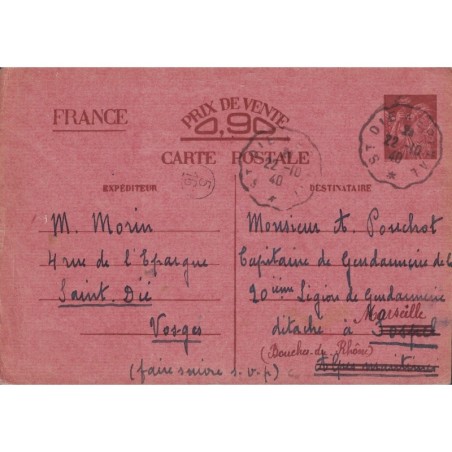 FRANCE
PRIX DE VENTE
0,90
CARTE POSTALE
EXPÉDITEUR
DESTINATAIRE
ST DIE
22-10
40
ST DIE
22-10
40
M. Morin
4 rue de l'Epargne
Saint. Dié
Vosges
(faire suivre s.v.p)
Monsieur A. Pouchot
Capitaine de Gendarmerie de la
20ième Légion de Gendarmerie
détaché à Sospel Marseille
(Bouches-du-Rhône)
Alpes maritimes